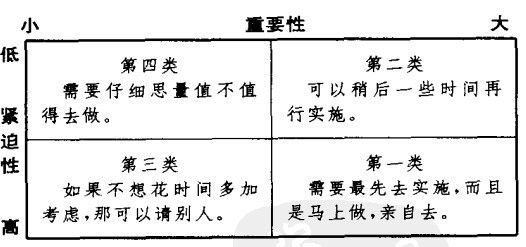 小 重要性 大
低
紧
迫
性
高
第四类
需要仔细思量值不值
得去做。
第二类
可以稍后一些时间再
行实施。
第三类
如果不想花时间多加
考虑,那可以请别人。
第一类
需要最先去实施,而且
是马上做,亲自去。